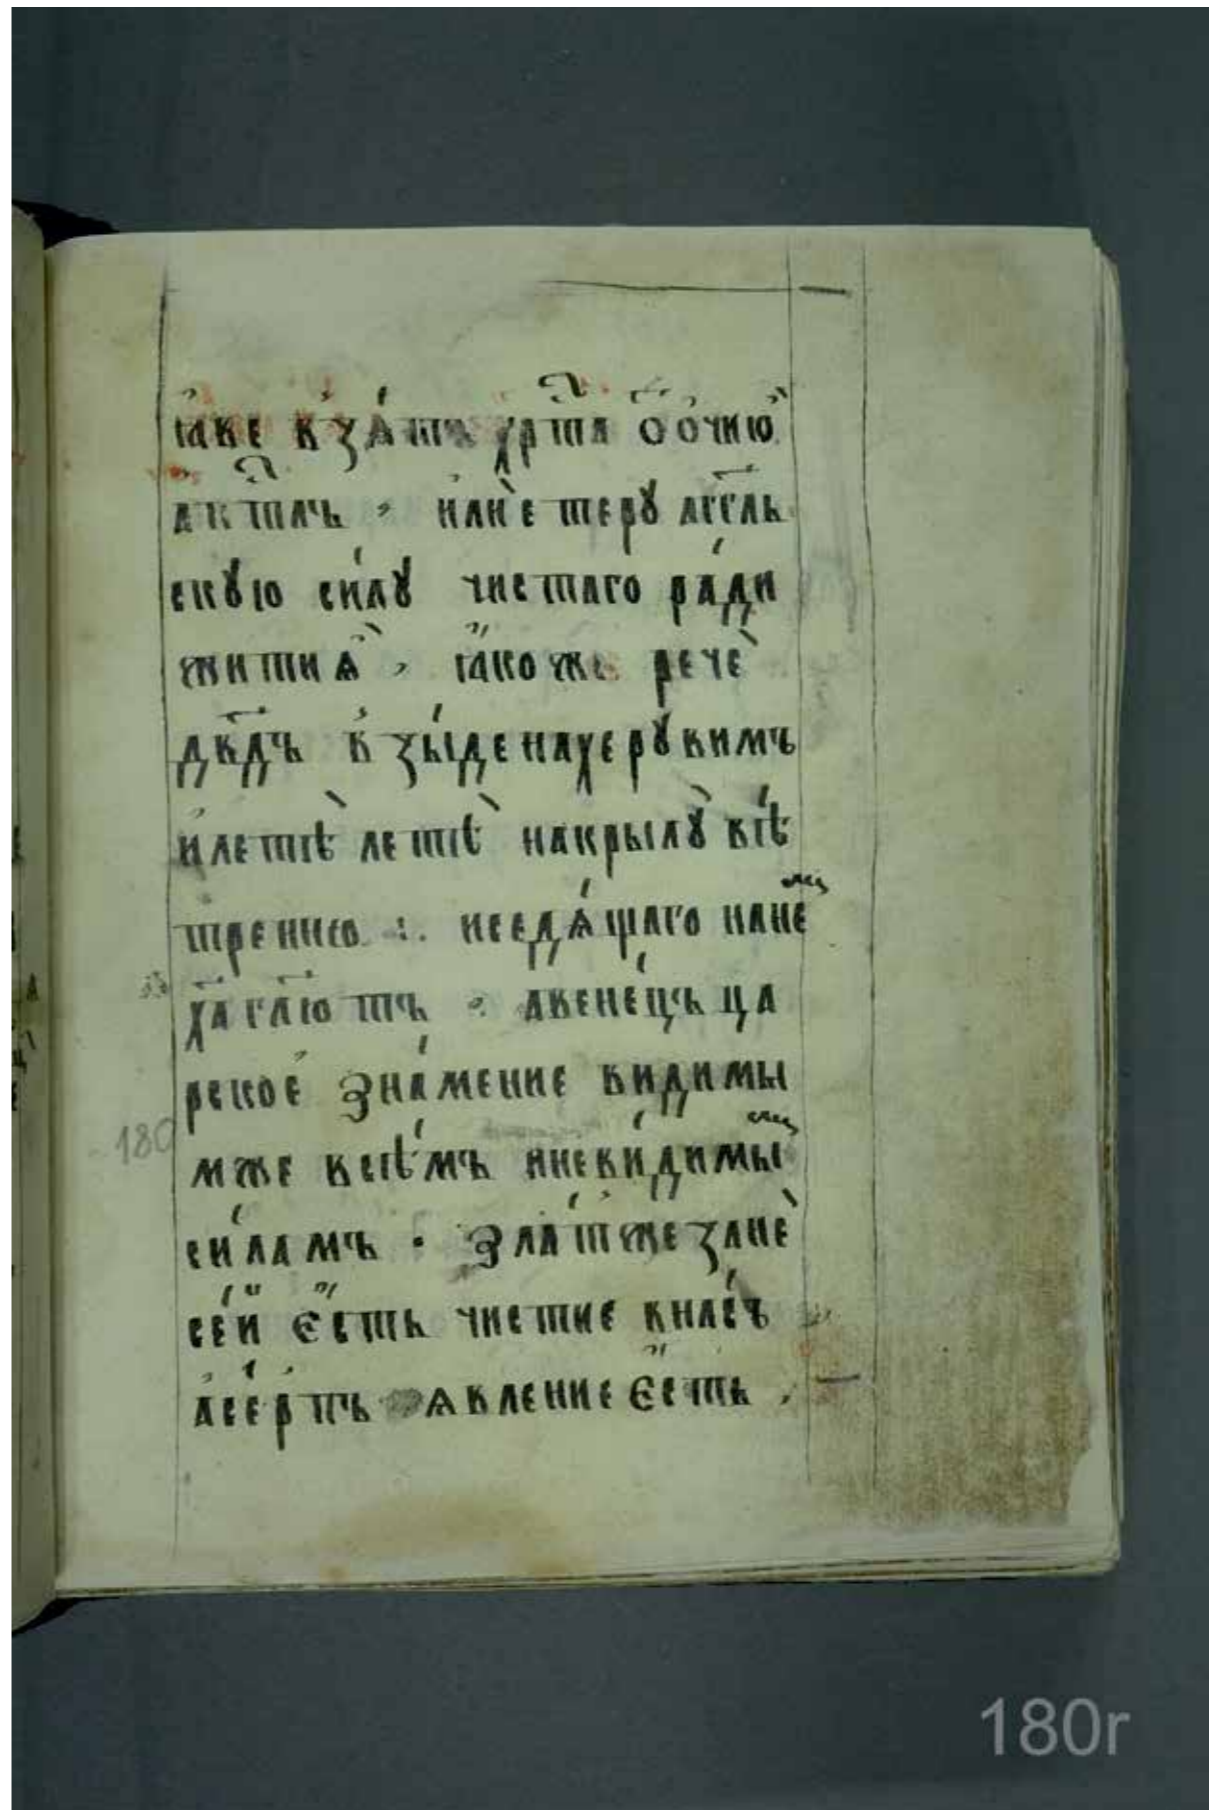 ꙗ҆ве в̾зѧ́тъ хрⷭ҇та ѿ ѻ҆чи́ю
апⷭ҇тлъ , и҆лѝ е теру а҆гг҃ль
скꙋю си́лꙋ чистаго ра́ди
житиѧ̀ , ꙗ҆коже рече̏
дв҃дъ в̾зы́де на херꙋвимъ
и҆ летѣ̀ летѣ̀ на крылꙋ̀ вѣ́
треню ⁖ и седѧ́щаго на не
ха гл҃ютъ , а вене́цъ ца
рское зна́мение видимы
мже всѣ́мъ и неви́димыⷨ
си́ламъ · зла́тже занѐ
се́й є҆сть чистие в нле́ъ
а҆се́рпъ ꙗвление є҆сть ,
180
180r